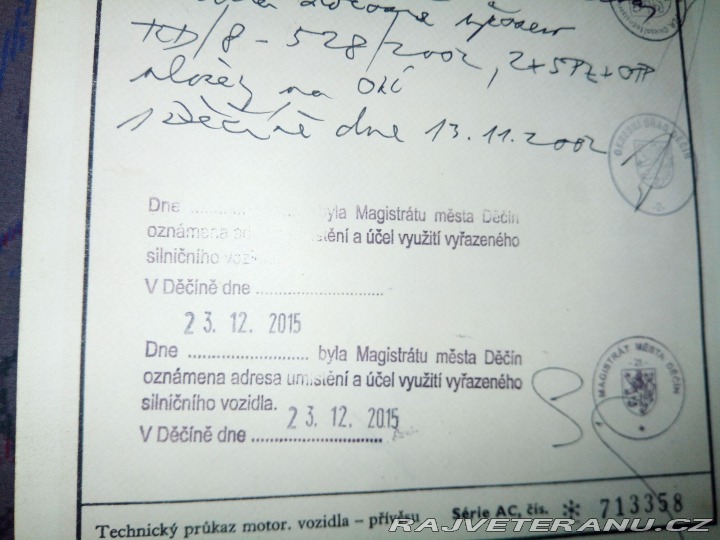 RD/8-528/2002, 2x SPZ + OTP
na OKÚ
v Děčíně dne 13.11.2002
OKRESNÍ ÚŘAD DĚČÍN
Dne ................ byla Magistrátu města Děčín
oznámena adresa umístění a účel využití vyřazeného
silničního vozidla
V Děčíně dne ..........................
23. 12. 2015
Dne ......................... byla Magistrátu města Děčín
oznámena adresa umístění a účel využití vyřazeného
silničního vozidla.
23. 12. 2015
V Děčíně dne ..........................
MAGISTRÁT MĚSTA DĚČÍN
- 21 -
Technický průkaz motor. vozidla – přívěsu Série AC, čís. * 713358
RAJVETERANU.CZ